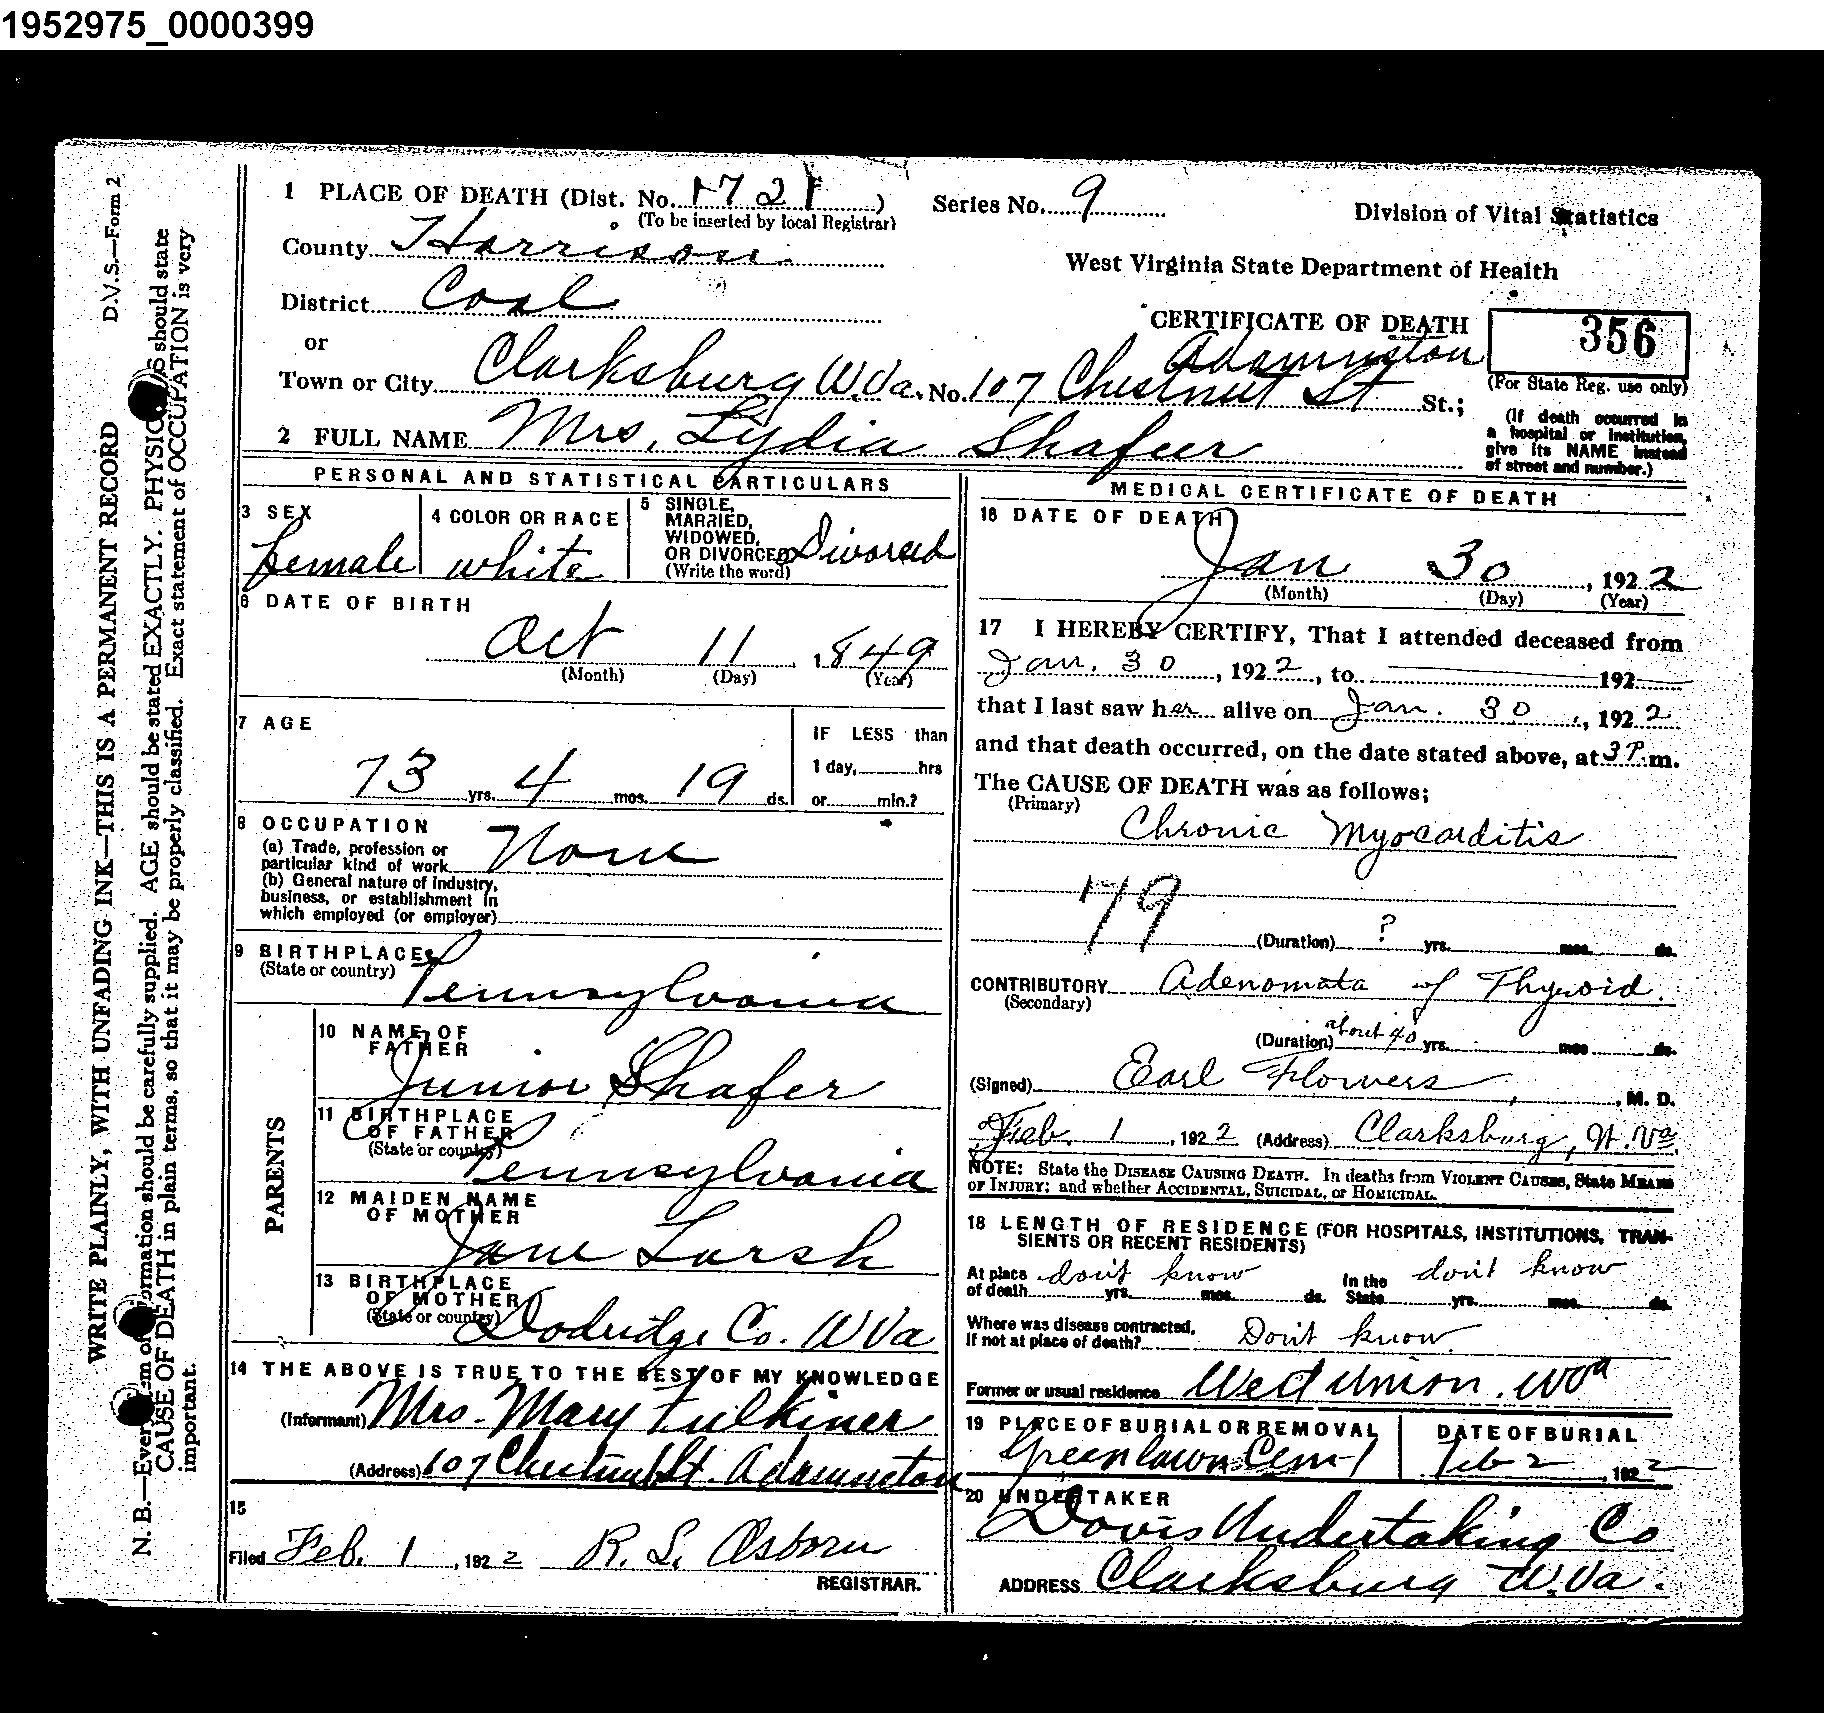 1952975_0000399
D.V.S.—Form 2
WRITE PLAINLY, WITH UNFADING INK—THIS IS A PERMANENT RECORD
N. B.—Every item of information should be carefully supplied. AGE should be stated EXACTLY. PHYSICIANS should state
CAUSE OF DEATH in plain terms, so that it may be properly classified. Exact statement of OCCUPATION is very
important.
1 PLACE OF DEATH (Dist. No. 1721)
(To be inserted by local Registrar)
Series No. 9
Division of Vital Statistics
County Harrison
West Virginia State Department of Health
District Coal
CERTIFICATE OF DEATH
356
(For State Reg. use only)
or
Adamston
Town or City Clarksburg W.Va. No. 107 Chestnut St St.;
(If death occurred in
a hospital or institution,
give its NAME instead
of street and number.)
2 FULL NAME Mrs. Lydia Shafer
PERSONAL AND STATISTICAL PARTICULARS
3 SEX
female
4 COLOR OR RACE
white
5 SINGLE,
MARRIED,
WIDOWED,
OR DIVORCED Divorced
(Write the word)
6 DATE OF BIRTH
Oct 11, 1849
(Month) (Day) (Year)
7 AGE
73 yrs. 4 mos. 19 ds.
IF LESS than
1 day, hrs
or min.?
8 OCCUPATION
(a) Trade, profession or
particular kind of work None
(b) General nature of industry,
business, or establishment in
which employed (or employer)
9 BIRTHPLACE
(State or country)
Pennsylvania
PARENTS
10 NAME OF
FATHER
Junior Shafer
11 BIRTHPLACE
OF FATHER
(State or country)
Pennsylvania
12 MAIDEN NAME
OF MOTHER
Jane Lursh
13 BIRTHPLACE
OF MOTHER
(State or country) Dodridge Co. W Va
14 THE ABOVE IS TRUE TO THE BEST OF MY KNOWLEDGE
(Informant) Mrs. Mary Fulkiner
(Address) 107 Chestnut St. Adamston
15
Filed Feb. 1, 1922 R. S. Osborn
REGISTRAR.
MEDICAL CERTIFICATE OF DEATH
16 DATE OF DEATH
Jan 30, 1922
(Month) (Day) (Year)
17 I HEREBY CERTIFY, That I attended deceased from
Jan. 30, 1922, to 192
that I last saw her alive on Jan. 30, 1922
and that death occurred, on the date stated above, at 3 P. m.
The CAUSE OF DEATH was as follows;
(Primary)
Chronic Myocarditis
79
(Duration) ? yrs. mos. ds.
CONTRIBUTORY Adenomata of Thyroid.
(Secondary)
(Duration) about 40 yrs. mos ds.
(Signed) Earl Flowers, M. D.
Feb. 1, 1922 (Address) Clarksburg, W. Va.
NOTE: State the DISEASE CAUSING DEATH. In deaths from VIOLENT CAUSES, State MEANS
OF INJURY; and whether ACCIDENTAL, SUICIDAL, or HOMICIDAL.
18 LENGTH OF RESIDENCE (FOR HOSPITALS, INSTITUTIONS, TRAN-
SIENTS OR RECENT RESIDENTS)
At place don't know In the don't know
of death yrs. mos. ds. State yrs. mos. ds.
Where was disease contracted,
If not at place of death? Don't know.
Former or usual residence West Union. W Va
19 PLACE OF BURIAL OR REMOVAL
Greenlawn Cem
DATE OF BURIAL
Feb 2, 1922
20 UNDERTAKER
Davis Undertaking Co
ADDRESS Clarksburg W.Va.